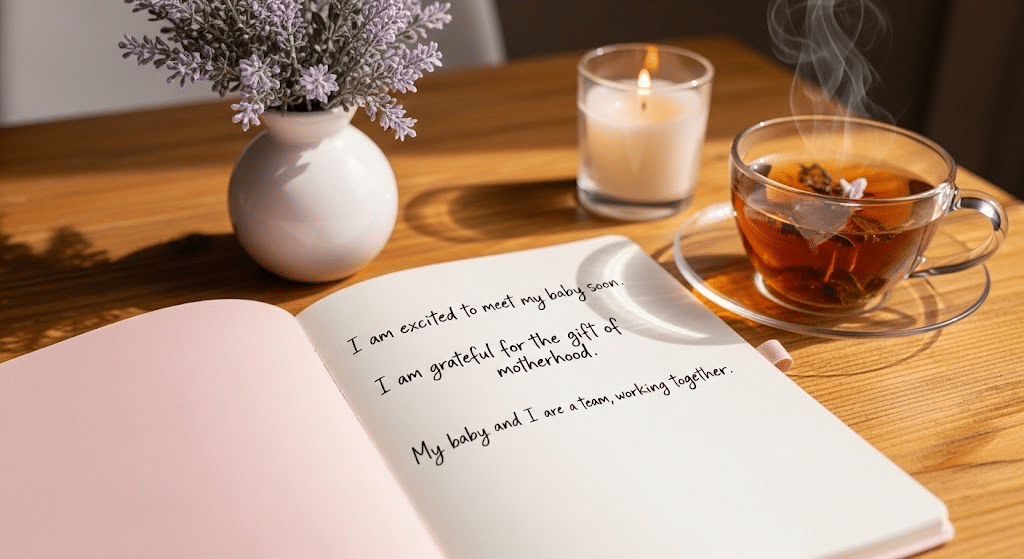 I am excited to meet my baby soon.
I am grateful for the gift of
motherhood.
My baby and I are a team, working together.